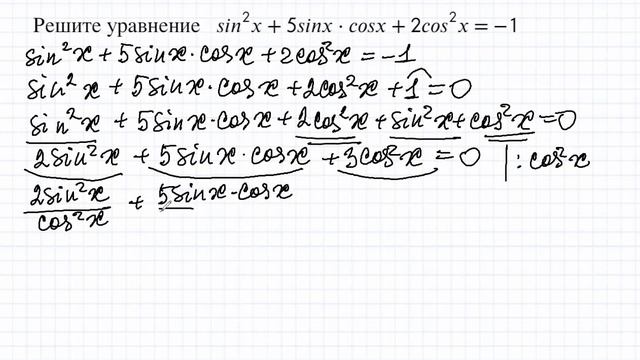 Решите уравнение sin²x + 5sinx · cosx + 2cos²x = −1
sin²x + 5sinx · cosx + 2cos²x = −1
sin²x + 5sinx · cosx + 2cos²x + 1 = 0
sin²x + 5sinx · cosx + 2cos²x + sin²x + cos²x = 0
2sin²x + 5sinx · cosx + 3cos²x = 0 | : cos²x
2sin²x/cos²x + 5sinx · cosx